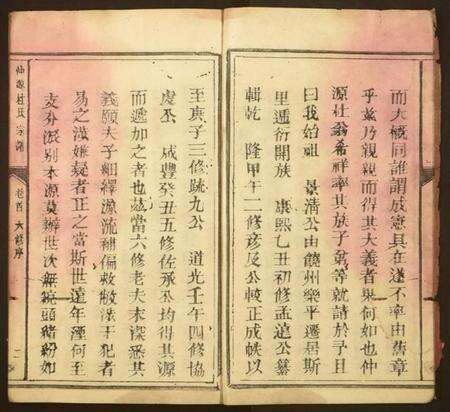 而大概同誰謂成憲具在遂不率由舊章
乎茲乃親親而得其大義者與何如也仲
源杜翁希祥率其族子等就請於予且
曰我始祖 景清公由饒州樂平遷居斯
里遞衍開族 康熙乙丑初修孟遠公纂
輯乾 隆甲午二修彦反公較正成帙以
至庚子三修跣九公 道光壬午四修協
虔丕 咸豐癸丑五修佐承丕均得其源
而遞加之者也茲當六修老夫未深悉其
義願夫子紬繹源流補偏救敝法于犯者
易之漢嫌疑者正之當斯世遠年湮何至
支分派别本源莫辦世次無統頭緒紛如
仙源杜氏宗譜 卷首 六修序 二